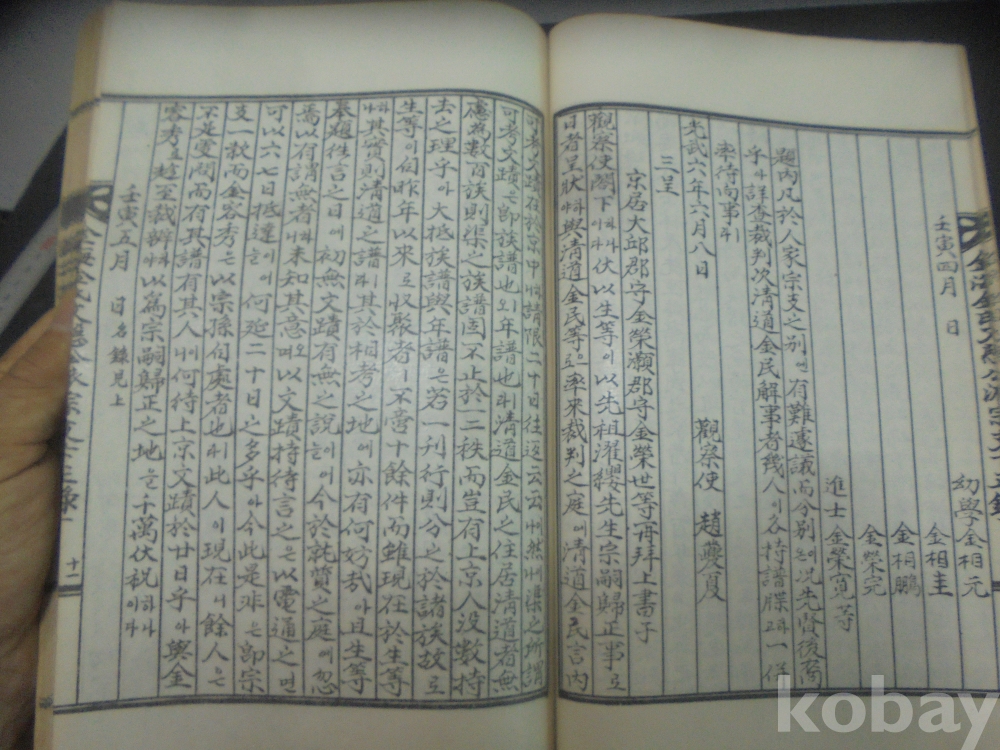 幼學金相元
金相圭
金相鵬
金榮完
進士 金榮寬等
壬寅四月 日
題內凡於人家宗支之別에有難遽議而分別은이況先賢後裔
乎아詳查裁判次淸道金民解事者幾人이各持譜牒고一係
率待向事
光武六年六月八日
觀察使 趙夔夏
三呈
京居大邱郡守金榮灝郡守金榮世等再拜上書于
觀察使閤下이라伏以生等이以先祖濯纓先生宗嗣歸正事로
日者呈狀與淸道金民等으로率來裁判之庭에淸道金民言內
可考文蹟在於京中請限二十日往返云云然渠之所謂
可考文蹟은卽族譜也외年譜也淸道金民之住居淸道者無
慮為數百族則渠之族譜固不止於一二秩而豈有上京人没數持
去之理乎아大抵族譜與年譜은若一刊行則分之於諸族故로
生等이自昨年以來로收聚者ㅣ不啻十餘件而雖現在於生等
나其實則淸道之譜라其於相考之地에亦有何妨哉아且生等
奉題徃言之日에初無文蹟有無之說이今於就質之庭에忽
焉以有謂無者未知其意며以文蹟持待言之은以電通之면
可以六七日抵達을이에何延二十日之多乎아今此是非은卽宗
支一款而金容秀은以宗孫自處者也라此人이現在니餘人은
不是更問而有其譜有其人니何待上京文蹟於廿日乎아與金
容考로趂至裁辨야以爲宗嗣歸正之地을千萬伏祝이다
壬寅五月 日名錄見上
十一
kobay